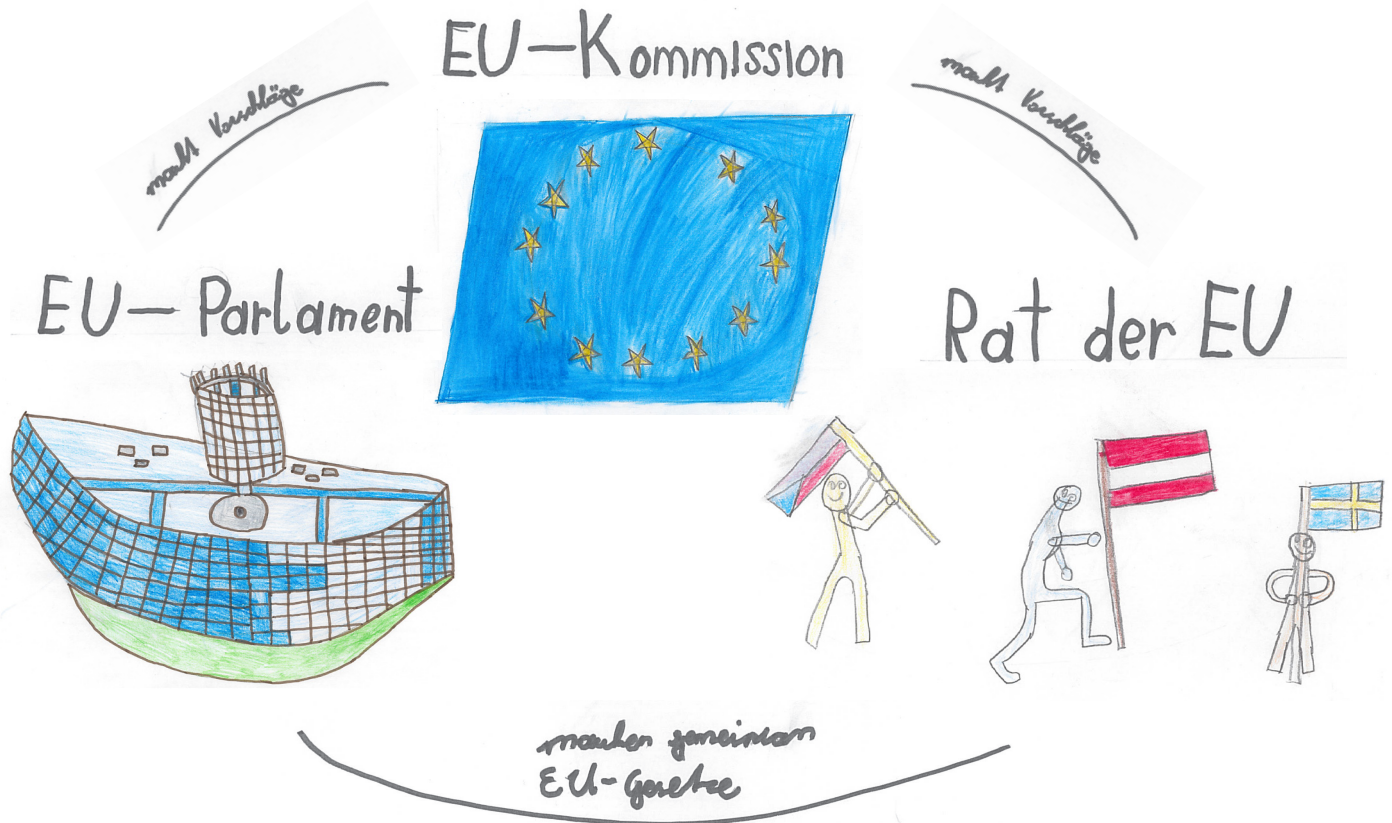 EU-Kommission
macht Vorschläge
macht Vorschläge
EU-Parlament
Rat der EU
machen gemeinsam
EU-Gesetze